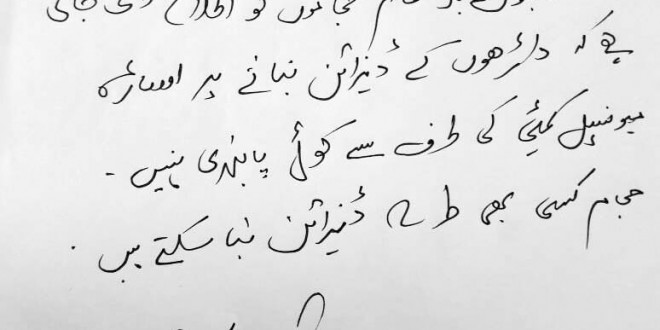 حجاموں کو اطلاع دی جاتی
ہے کہ داڑھیوں کے ڈیزائن بنانے پر
میونسپل کمیٹی کی طرف سے کوئی پابندی نہیں ۔
حجام کسی بھی ڈیزائن بنا سکتے ہیں ۔